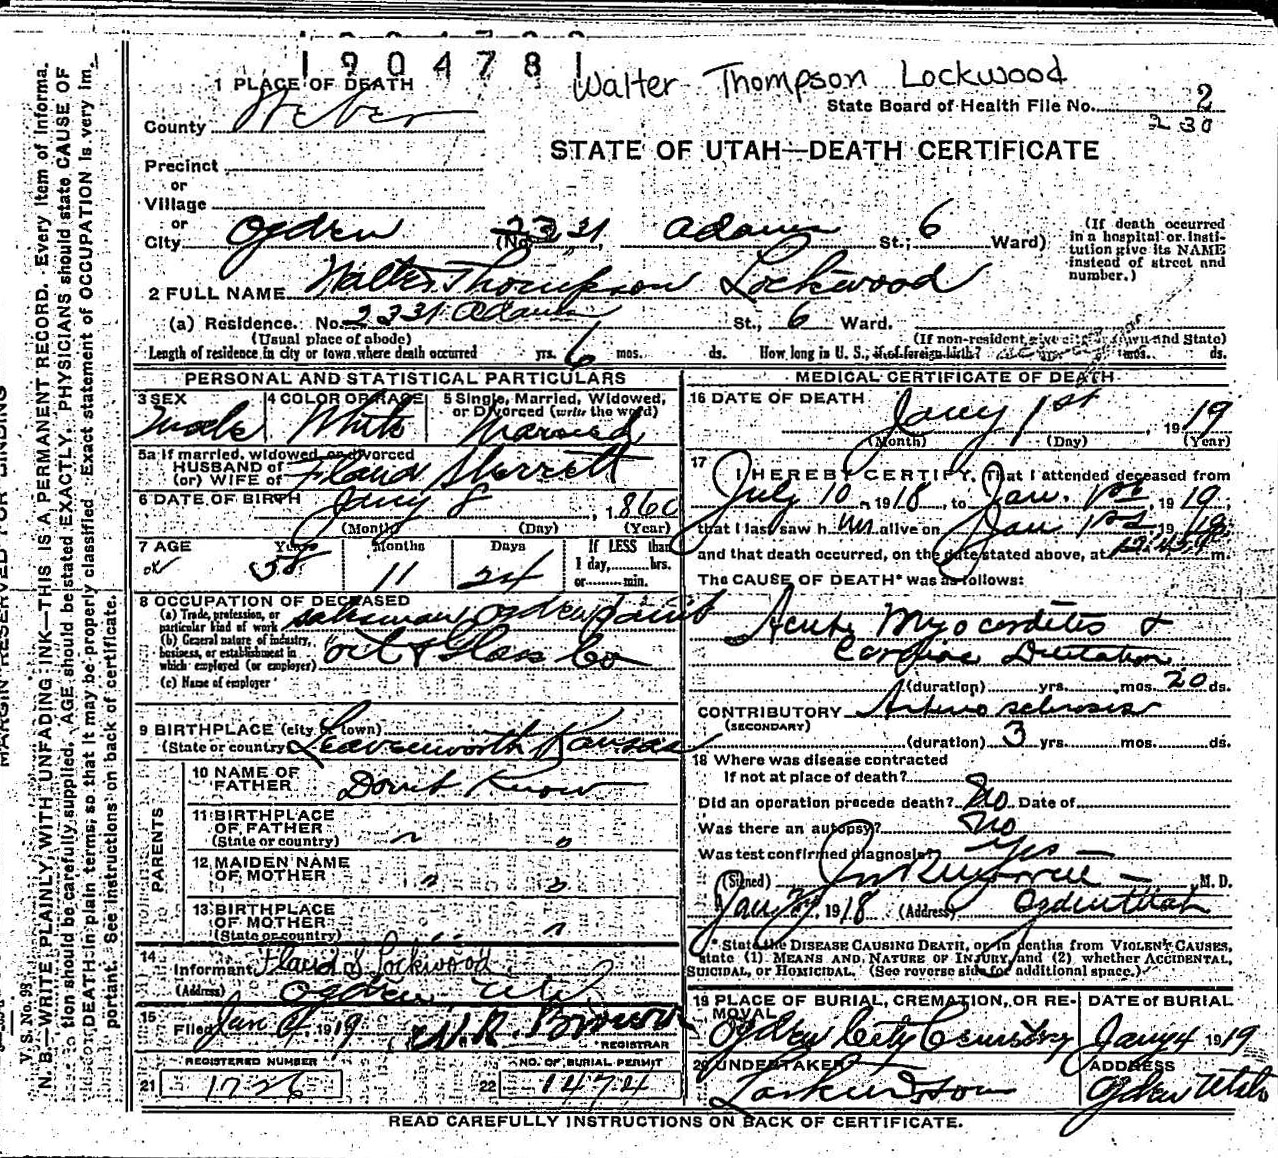 1904781
Walter Thompson Lockwood
1 PLACE OF DEATH
State Board of Health File No. 2
230
County Weber
STATE OF UTAH—DEATH CERTIFICATE
Precinct
or
Village
or
City Ogden (No. 2331, Adams St.; 6 Ward)
(If death occurred in a hospital or insti-
tution give its NAME
instead of street and
number.)
2 FULL NAME Walter Thompson Lockwood
(a) Residence. No. 2331 Adams St., 6 Ward.
(Usual place of abode) (If non-resident give city or town and State)
Length of residence in city or town where death occurred yrs. 6 mos. ds. How long in U. S., if of foreign birth? mos. ds.
PERSONAL AND STATISTICAL PARTICULARS
3 SEX Male
4 COLOR OR RACE White
5 Single, Married, Widowed,
or Divorced (write the word)
Married
5a If married, widowed, or divorced
HUSBAND of
(or) WIFE of
6 DATE OF BIRTH Jany 8, 1860
(Month) (Day) (Year)
7 AGE Years 58 Months 11 Days 24
If LESS than
1 day, hrs.
or min.
8 OCCUPATION OF DECEASED
(a) Trade, profession, or
particular kind of work salesman Ogden Paint
(b) General nature of industry,
business, or establishment in
which employed (or employer) oil & Glass Co
(c) Name of employer
9 BIRTHPLACE (city or town)
(State or country) Leavenworth Kansas
PARENTS
10 NAME OF
FATHER Don't Know
11 BIRTHPLACE
OF FATHER
(State or country) " "
12 MAIDEN NAME
OF MOTHER " "
13 BIRTHPLACE
OF MOTHER
(State or country) " "
14
Informant S Lockwood
(Address) Ogden Utah
15
Filed Jan 1919
REGISTRAR
REGISTERED NUMBER
21 1726
NO. OF BURIAL PERMIT
22 1474
MEDICAL CERTIFICATE OF DEATH
16 DATE OF DEATH Jany 1st, 1919
(Month) (Day) (Year)
17
I HEREBY CERTIFY, That I attended deceased from
July 10, 1918, to Jan. 1st, 1919
that I last saw him alive on Jan 1st, 19
and that death occurred, on the date stated above, at m.
The CAUSE OF DEATH* was as follows:
Acute Myocarditis &
Cardiac Dilitation
(duration) yrs. mos. 20 ds.
CONTRIBUTORY Arterio sclerosis
(SECONDARY)
(duration) 3 yrs. mos. ds.
18 Where was disease contracted
If not at place of death?
Did an operation precede death? No Date of
Was there an autopsy? No
Was test confirmed diagnosis? Yes
(Signed) M. D.
Jany , 1918 (Address) Ogden Utah
* State the DISEASE CAUSING DEATH, or in deaths from VIOLENT CAUSES,
state (1) MEANS AND NATURE OF INJURY, and (2) whether ACCIDENTAL,
SUICIDAL, or HOMICIDAL. (See reverse side for additional space.)
19 PLACE OF BURIAL, CREMATION, OR RE-
MOVAL
Ogden City Cemetery
DATE OF BURIAL
Jany 4 1919
20 UNDERTAKER
ADDRESS
Ogden Utah
READ CAREFULLY INSTRUCTIONS ON BACK OF CERTIFICATE.
MARGIN RESERVED FOR BINDING
V. S. No. 98
N. B.—WRITE PLAINLY, WITH UNFADING INK—THIS IS A PERMANENT RECORD. Every item of informa-
tion should be carefully supplied. AGE should be stated EXACTLY. PHYSICIANS should state CAUSE OF
DEATH in plain terms, so that it may be properly classified. Exact statement of OCCUPATION is very im-
portant. See instructions on back of certificate.